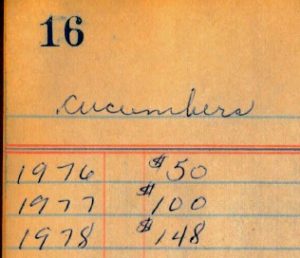 16
Cucumbers
1976 $50
1977 $100
1978 $148